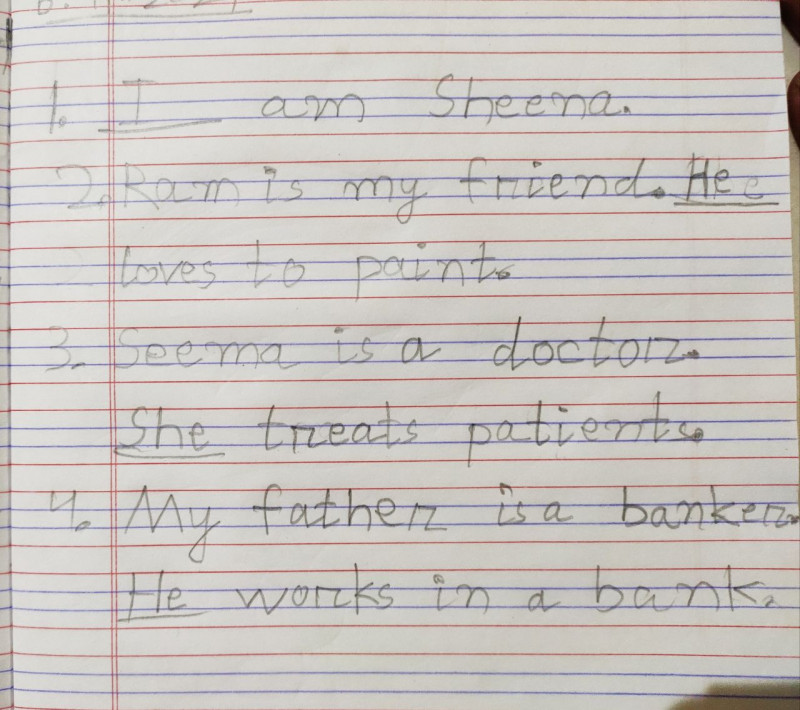 1. I am Sheena.
2. Ram is my friend. He
loves to paint.
3. Seema is a doctor.
She treats patients.
4. My father is a banker.
He works in a bank.